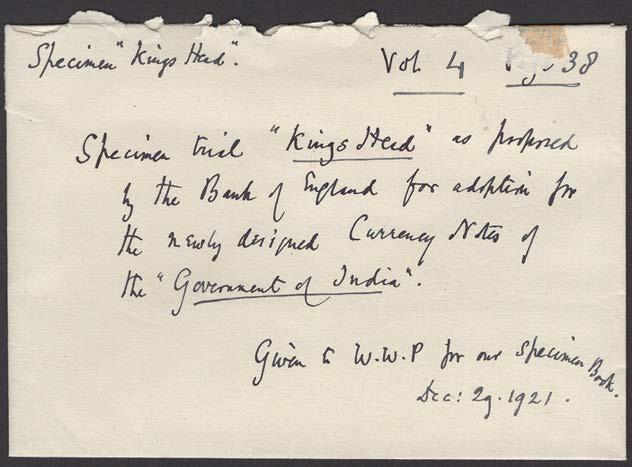 Specimen "Kings Head".
Vol. 4 Page 38
Specimen trial "Kings Head" as proposed
by the Bank of England for adoption for
the newly designed Currency Notes of
the "Government of India".
Given to W.W.P for our Specimen Book.
Dec: 29. 1921.